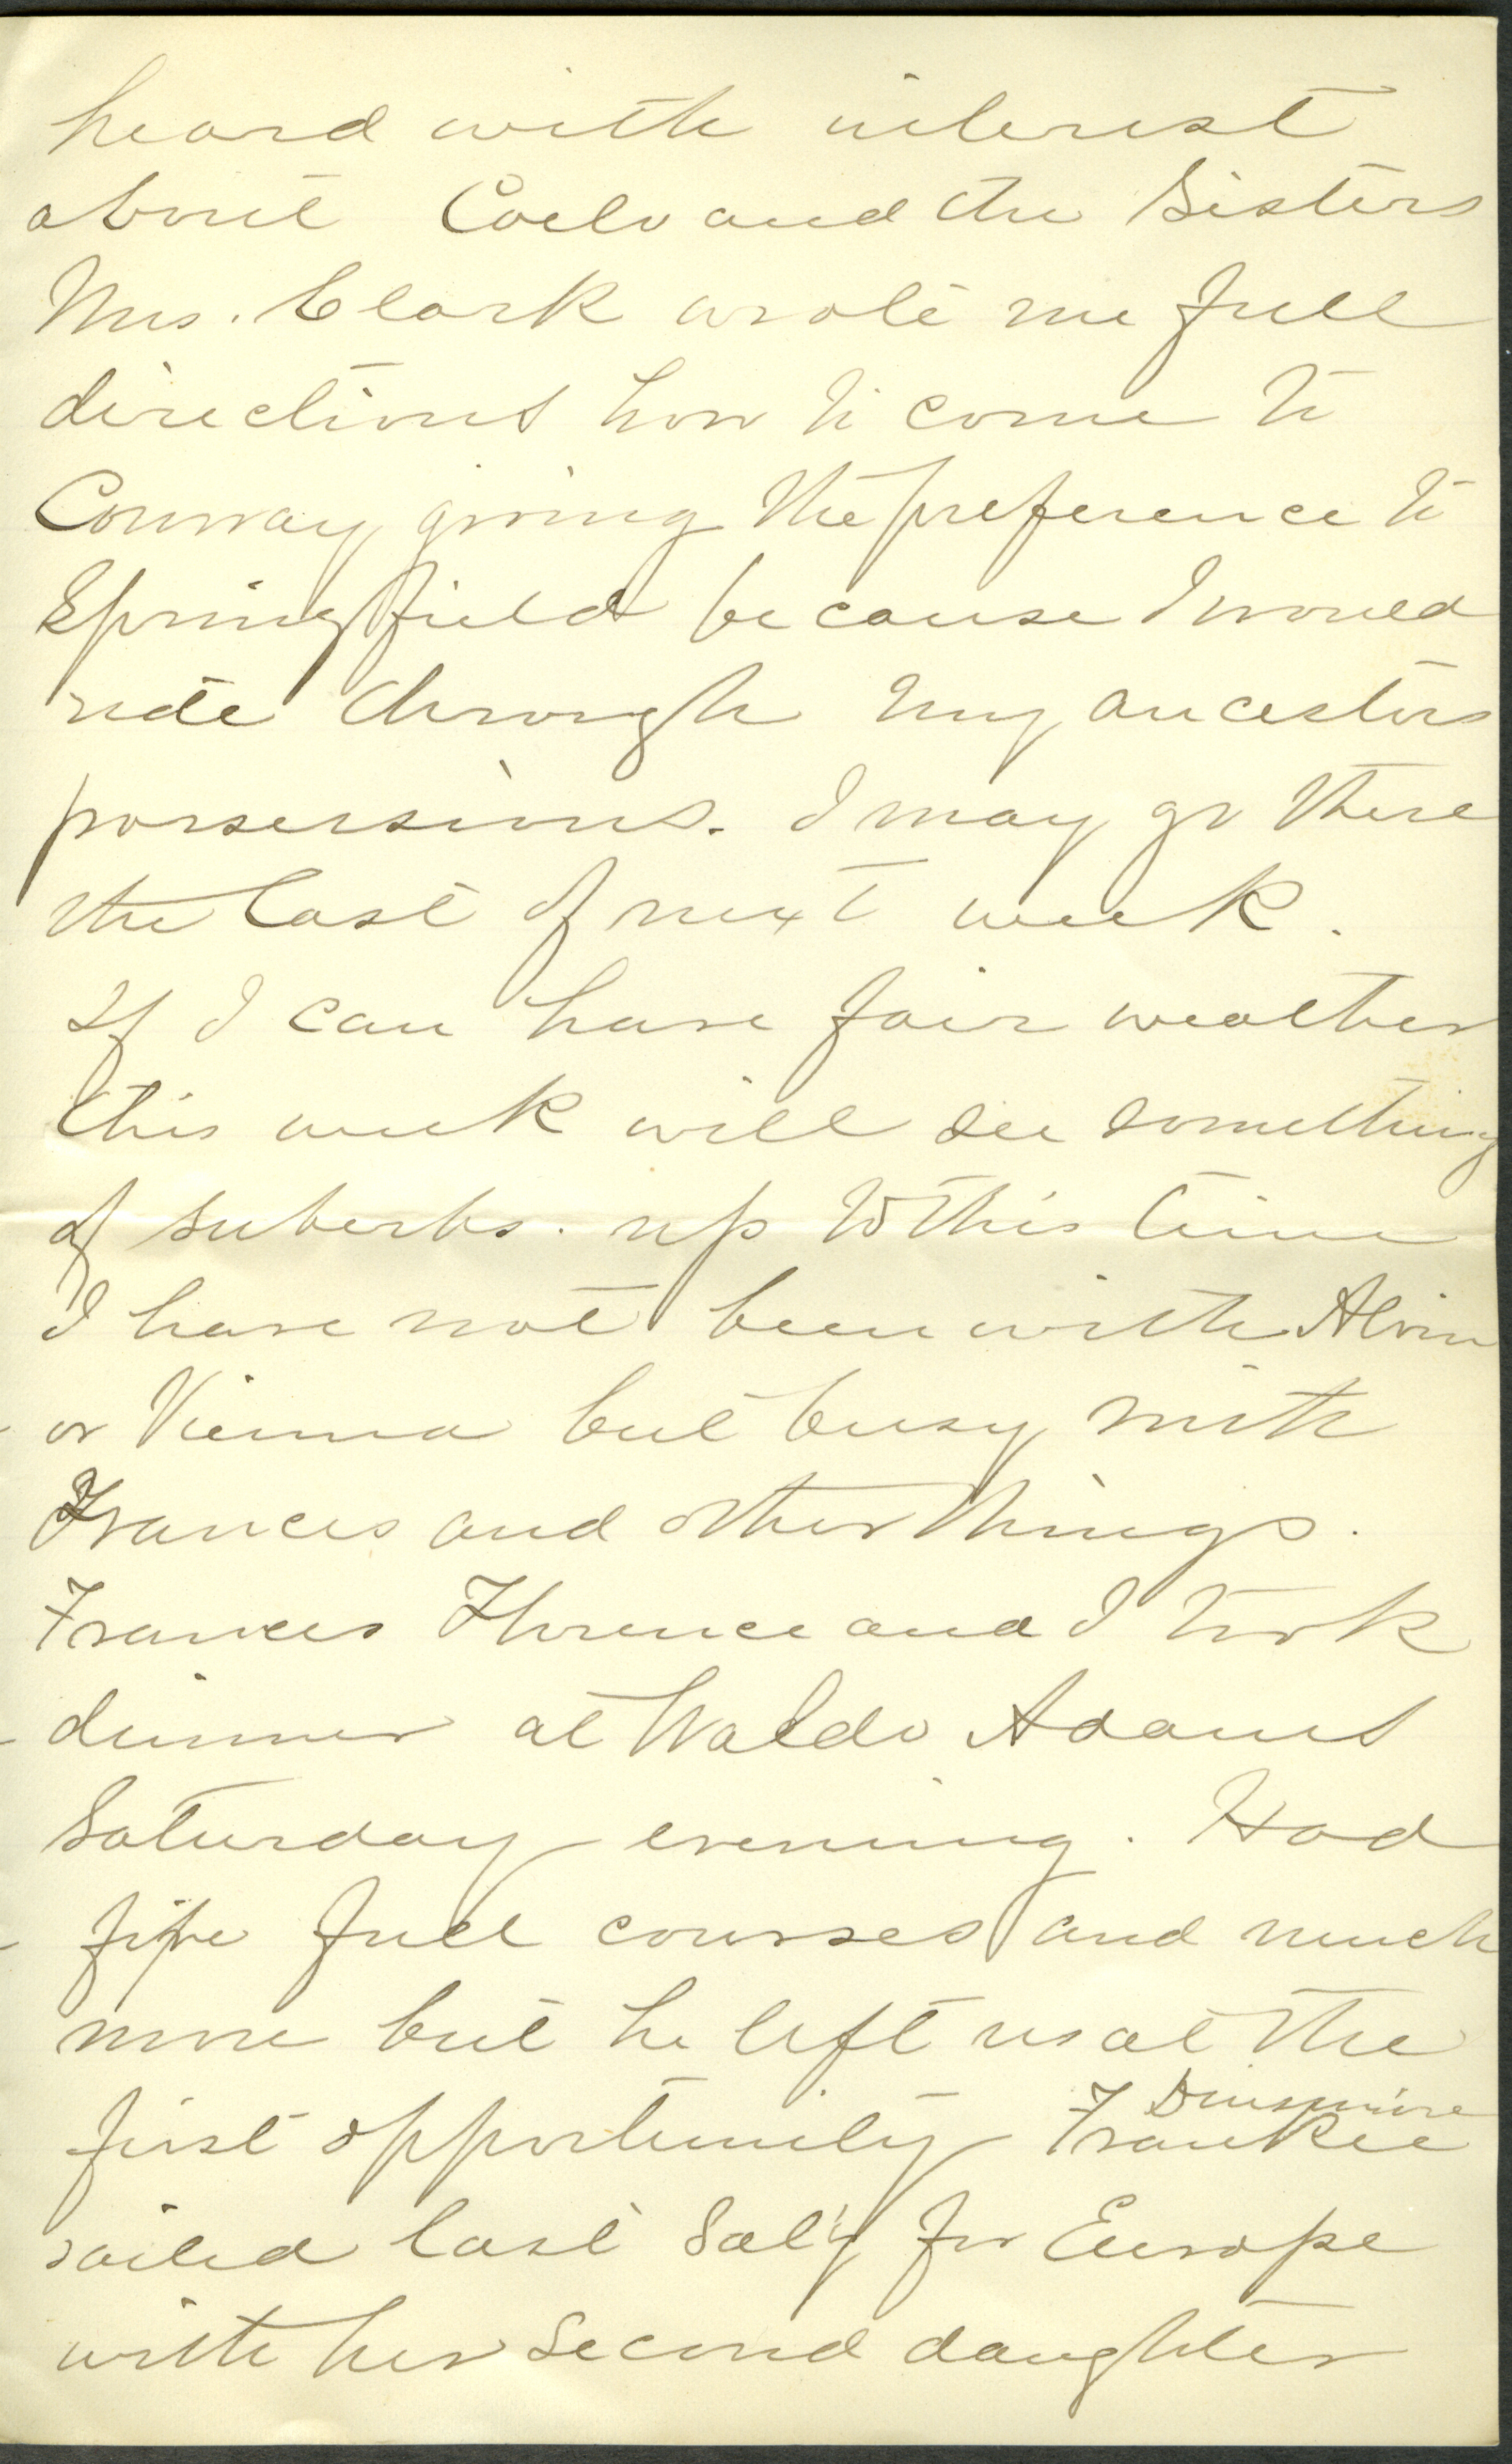 heard with interest
about Coelo and the Sisters
Mrs. Clark wrote me full
directions how to come to
Conway giving the preference to
Springfield because I would
ride through my ancestors
possessions. I may go there
the last of next week.
If I can have fair weather
this week will see something
of suberbs. up to this time
I have not been with Alvin
or Vienna but busy with
Frances and other things.
Frances Florence and I took
dinner at Waldo Adams
Saturday evening. Had
five full courses and much
more but he left us at the
Dinsmore
first opportunity Frankee
sailed last Sat'y for Europe
with her second daughter